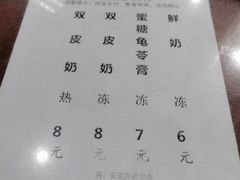 双皮奶
热
8元
双皮奶
冻
8元
蜜糖龟苓膏
冻
7元
鲜奶
冻
6元